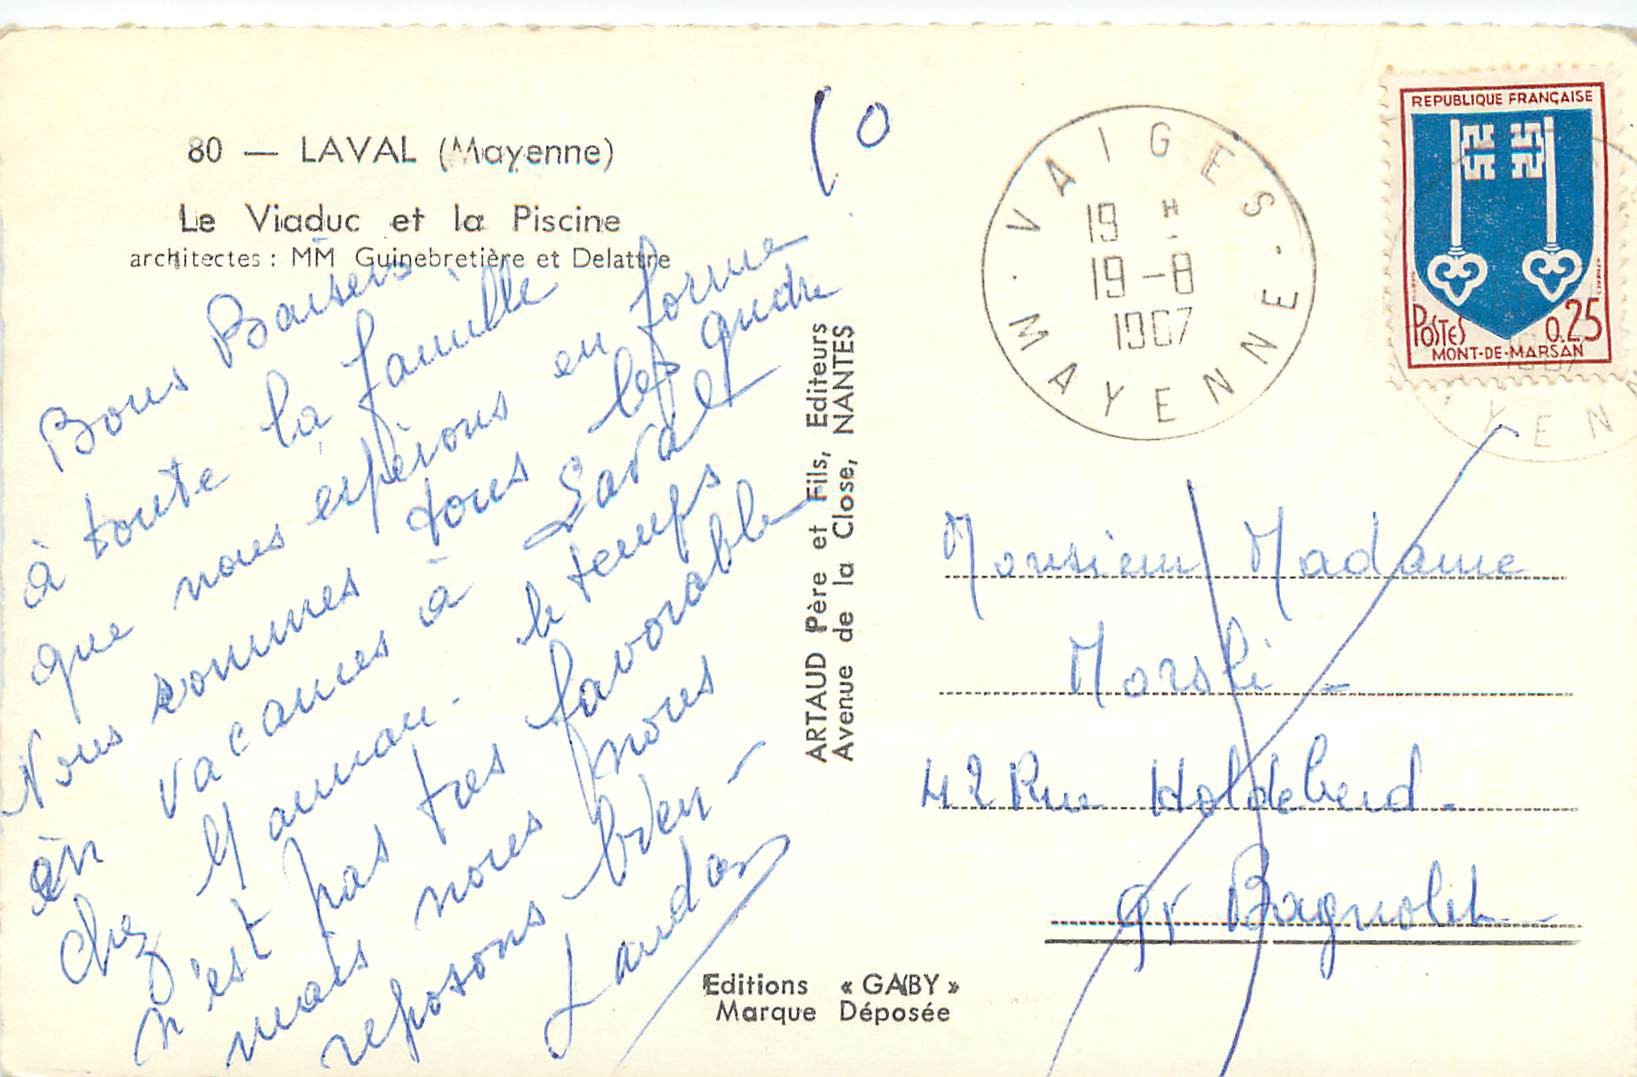 80 — LAVAL (Mayenne)
Le Viaduc et la Piscine
architectes : MM Guinebretière et Delattre
Bons Baisers
à toute la famille
que nous espérons en forme
Nous sommes tous les quatre
en vacances à Laval et
chez Maman. le temps
n'est pas tres favorable
mais nous nous
reposons bien -
ARTAUD Père et Fils, Editeurs
Avenue de la Close, NANTES
Editions « GABY »
Marque Déposée
10
VAIGES - MAYENNE
19 H
19 - 8
1967
REPUBLIQUE FRANÇAISE
POSTES 0.25
MONT-DE-MARSAN
Monsieur Madame
42 Rue
93 Bagnolet